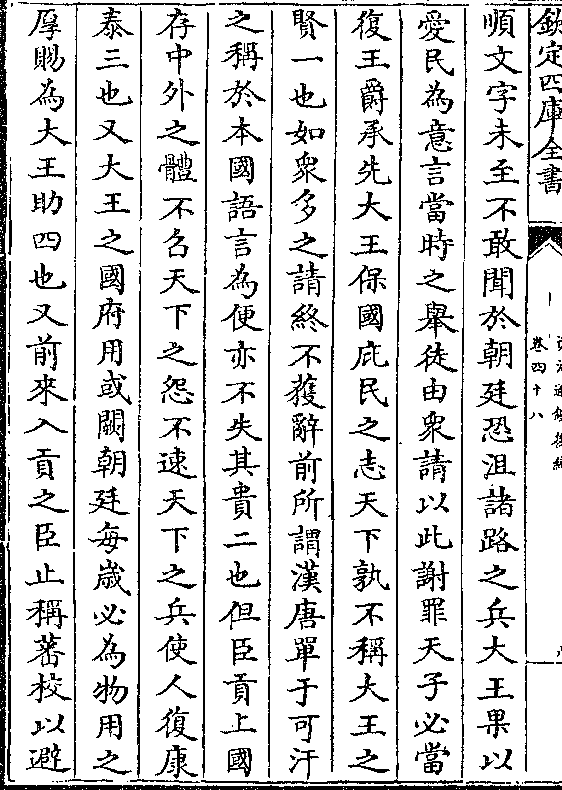 欽定四庫全書
卷四十八
順文字未至不敢聞於朝廷恐沮諸路之兵大王果以
愛民為意言當時之舉徒由衆請以此謝罪天子必當
復王爵承先大王保國庇民之志天下孰不稱大王之
賢一也如衆多之請終不獲辭前所謂漢唐單于可汗
之稱於本國語言為便亦不失其貴二也但臣貢上國
存中外之體不召天下之怨不速天下之兵使人復康
泰三也又大王之國府用或闕朝廷每歲必為物用之
厚賜為大王助四也又前來入貢之臣止稱蕃校以避